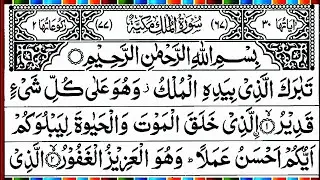 اٰیَاتُهَا ٣٠ (٦٧) سُوْرَةُ الْمُلْكِ مَكِّيَّةٌ (٧٧) رُكُوْعَاتُهَا ٢
بِسْمِ اللّٰهِ الرَّحْمٰنِ الرَّحِيْمِ
تَبٰرَكَ الَّذِیْ بِیَدِهِ الْمُلْكُ ز وَهُوَ عَلٰی كُلِّ شَیْءٍ
قَدِیْرُ ۙ﴿١﴾ اۨلَّذِیْ خَلَقَ الْمَوْتَ وَالْحَیٰوةَ لِیَبْلُوَكُمْ
اَیُّكُمْ اَحْسَنُ عَمَلًا ؕ وَهُوَ الْعَزِیْزُ الْغَفُوْرُ ۙ﴿٢﴾ الَّذِیْ